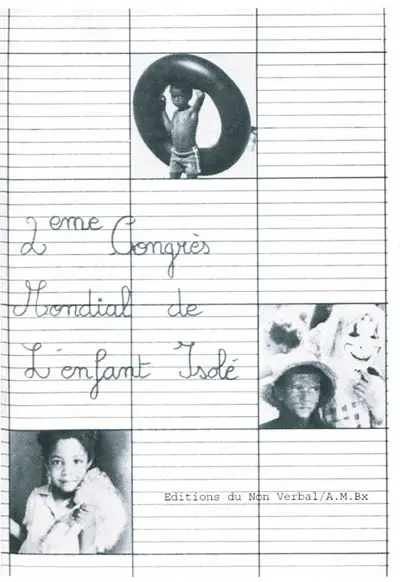 2eme Congrès
Mondial de
L'enfant Isolé
Editions du Non Verbal/A.M.Bx